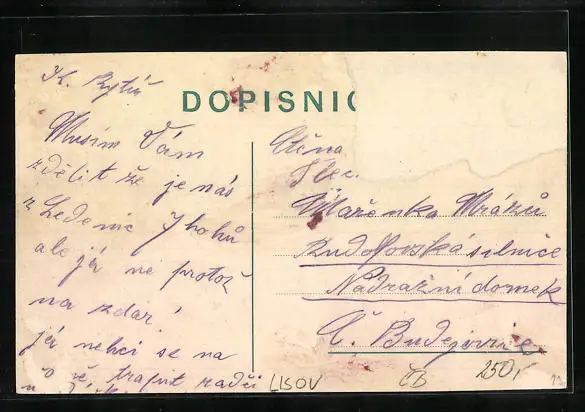 DOPISNIC
Musím Vám
zdělit že je nás
z Ledenic 7 hohů
ale já ne protož
na zdar!
já nehci se na
trapit radči
Ctěna
Slec.
Mařenka Mrázů
Rudolfovská silnice
Nádražní domek
Č. Budějovice
LISOV
ČB 250,-